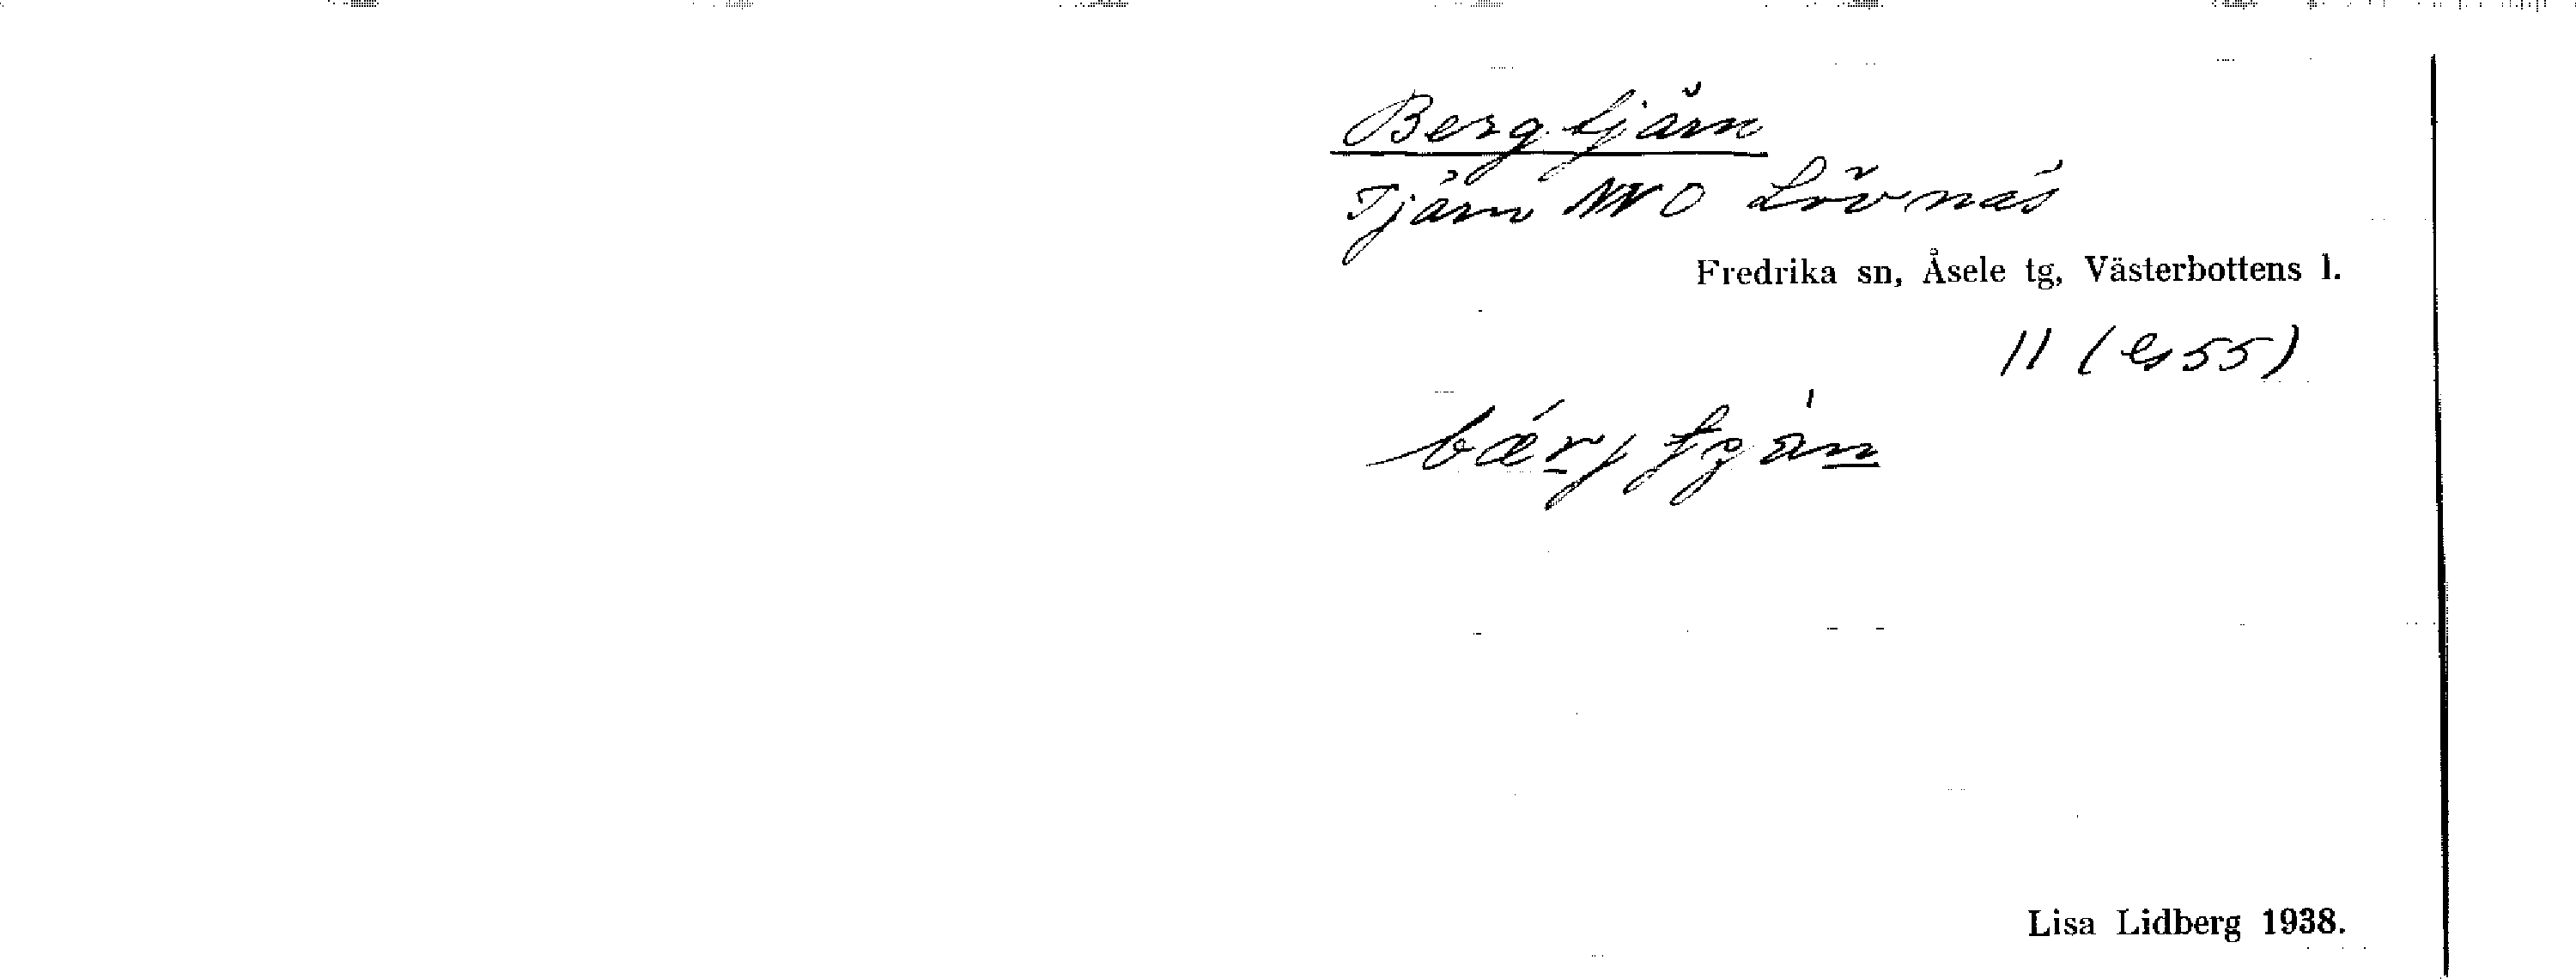 Bergtjärn
Tjärn NNO Lövnäs
Fredrika sn, Åsele tg, Västerbottens l.
11 (es 55)
Lisa Lidberg 1938.